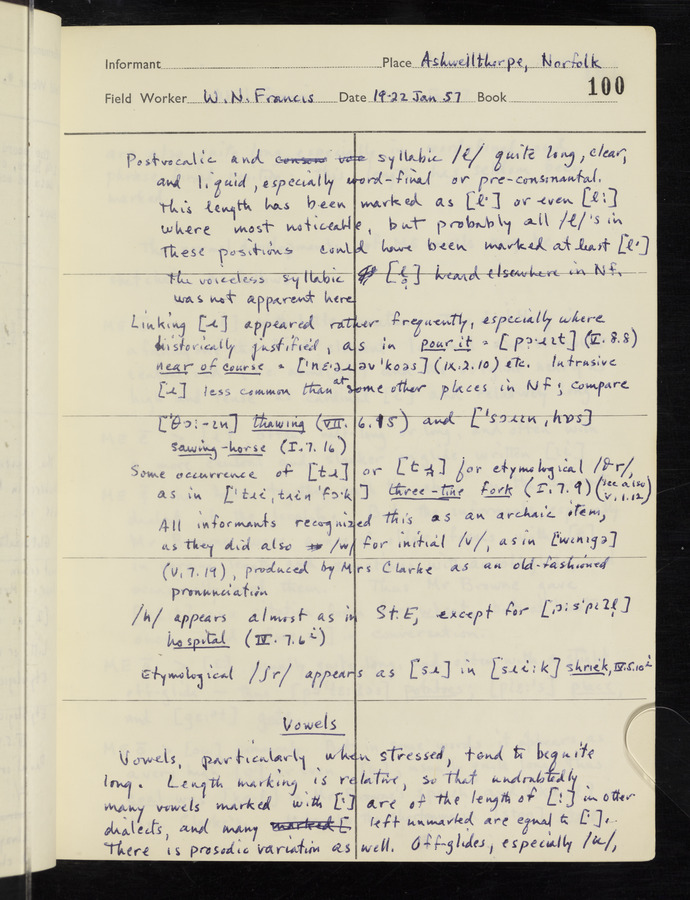 Informant Place Ashwellthorpe, Norfolk
100
Field Worker W.N. Francis Date 19-22 Jan 57 Book
Postvocalic and syllabic /l/ quite long, clear,
and liquid, especially word-final or pre-consonantal.
This length has been marked as [lˑ] or even [lː]
where most noticeable, but probably all /l/'s in
these positions could have been marked at least [lˑ]
The voiceless syllabic [l̥̩] heard elsewhere in Nf.
was not apparent here
Linking [ɹ] appeared rather frequently, especially where
historically justified, as in pour it = [pɔˑɹɪt] (V.8.8)
near of course = (IX.2.10) etc. Intrusive
[ɹ] less common than at some other places in Nf; compare
['θɔː-ɪn] thawing (VII.6.15) and ['sɔɹɪn,hɒs]
sawing-horse (I.7.16)
Some occurrence of [tɹ] or for etymological /θr/,
as in three-tine fork (I.7.9) (see also V.1.12)
All informants recognized this as an archaic item,
as they did also /w/ for initial /v/, as in [wɪnɪgə]
(V.7.19), produced by Mrs Clarke as an old-fashioned
pronunciation
/h/ appears almost as in St.E, except for
hospital (IV.7.6²)
Etymological /ʃr/ appears as [sɹ] in [sɹiːk] shriek, IV.5.10²
Vowels
Vowels, particularly when stressed, tend to be quite
long. Length marking is relative, so that undoubtedly
many vowels marked with [ˑ] are of the length of [ː] in other
dialects, and many marked [ left unmarked are equal to [ˑ].
There is prosodic variation as well. Off-glides, especially /ɪ/,